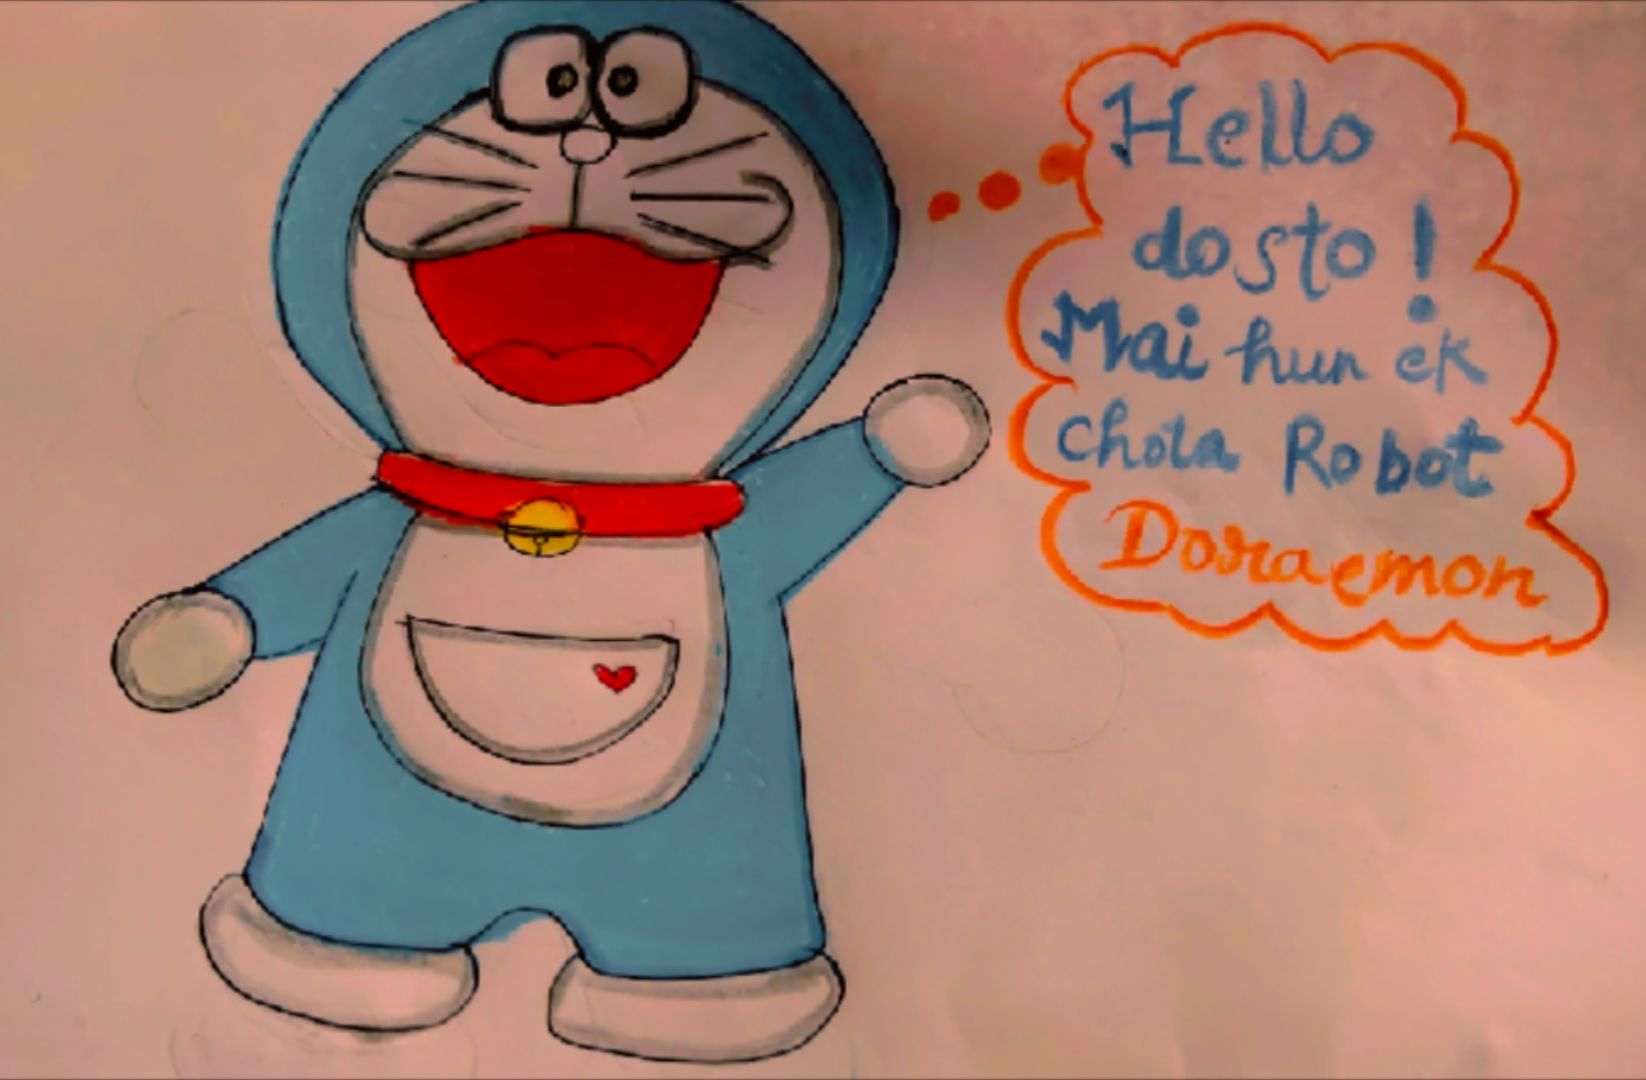 Hello
dosto!
Mai hun ek
chota Robot
Doraemon